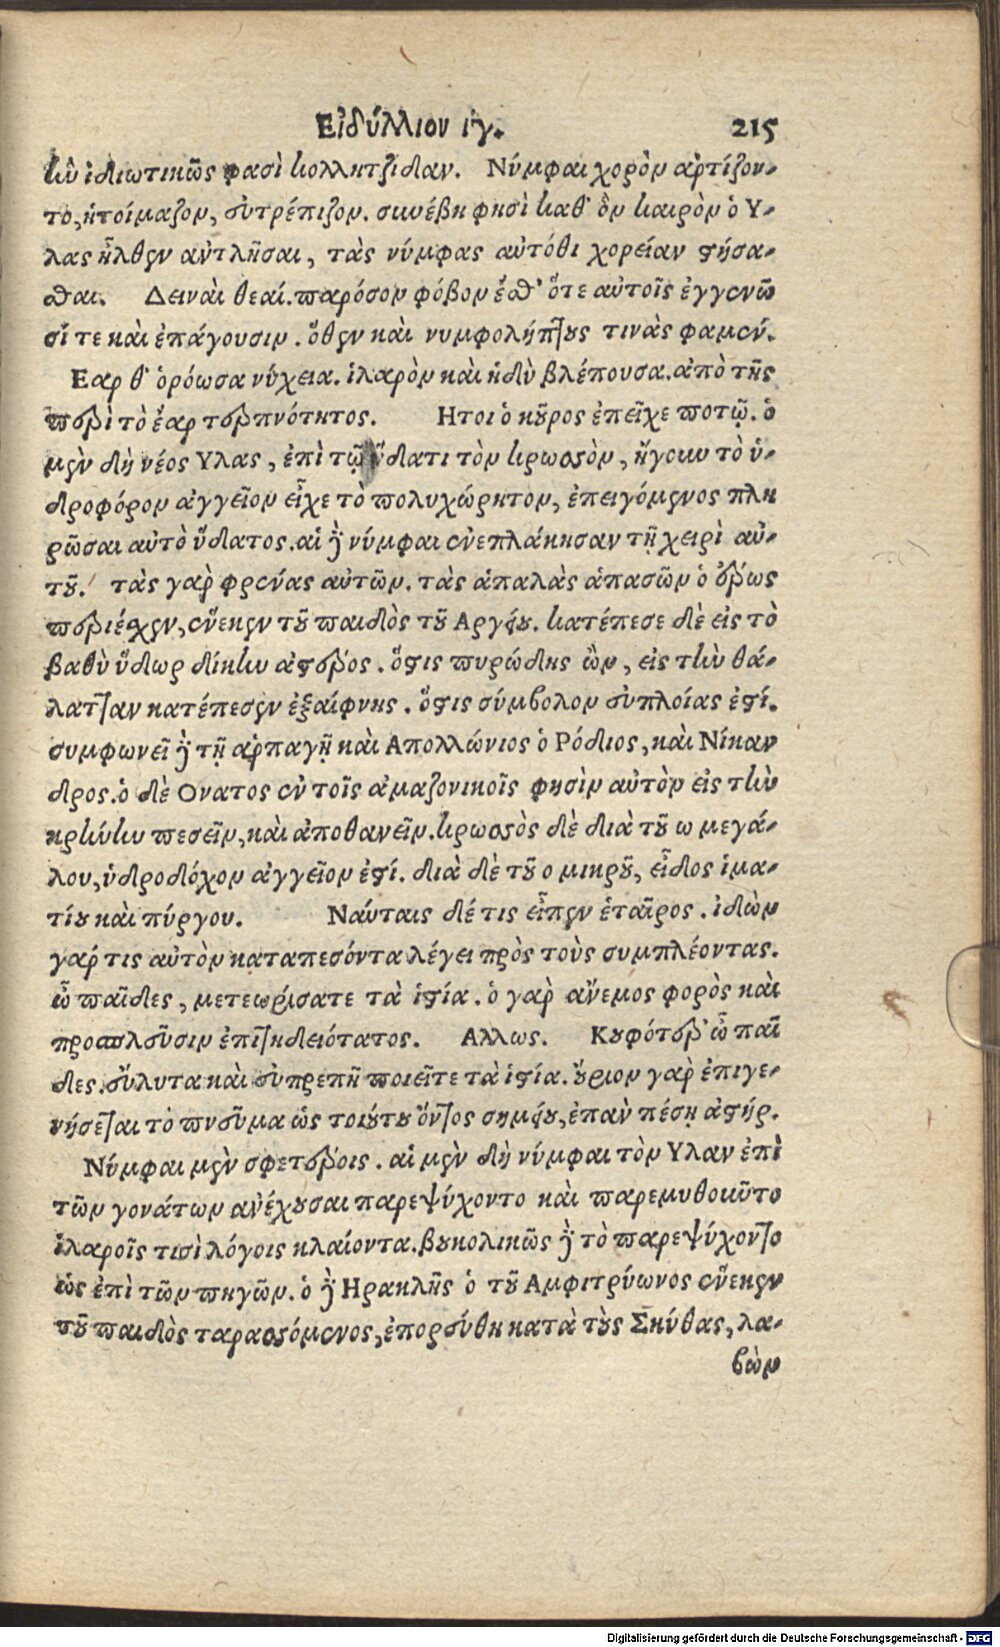 Εἰδύλλιον ιγ. 215
ἣν ἰδιωτικῶς φασὶ κολλητζίδαν. Νύμφαι χορὸν ἀρτίζον-
το, ἡτοίμαζον, εὐτρέπιζον. συνέβη φησὶ καθ' ὃν καιρὸν ὁ Υ-
λας ἦλθεν ἀντλῆσαι, τὰς νύμφας αὐτόθι χορείαν στήσα-
σθαι. Δειναὶ θεαί. παρόσον φόβον ἔσθ' ὅτε αὐτοῖς ἐγγενῶ
σί τε καὶ ἐπάγουσιν. ὅθεν καὶ νυμφολήπτους τινὰς φαμέν.
Εαρ θ' ὁρόωσα νύχεια. ἱλαρὸν καὶ ἡδὺ βλέπουσα. ἀπὸ τῆς
περὶ τὸ ἔαρ τερπνότητος. Ητοι ὁ κοῦρος ἐπεῖχε ποτῷ. ὁ
μὲν δὴ νέος Υλας, ἐπὶ τῷ ὕδατι τὸν κρωσσὸν, ἤγουν τὸ ὑ-
δροφόρον ἀγγεῖον εἶχε τὸ πολυχώρητον, ἐπειγόμενος πλη
ρῶσαι αὐτὸ ὕδατος. αἱ δὲ νύμφαι ἐνεπλάκησαν τῇ χειρὶ αὐ-
τοῦ. τὰς γὰρ φρένας αὐτῶν. τὰς ἁπαλὰς ἁπασῶν ὁ ἔρως
περιέσχεν, ἕνεκεν τοῦ παιδὸς τοῦ Αργείου. κατέπεσε δὲ εἰς τὸ
βαθὺ ὕδωρ δίκην ἀστέρος. ὅστις πυρώδης ὢν, εἰς τὴν θά-
λατταν κατέπεσεν ἐξαίφνης. ὅστις σύμβολον εὐπλοίας ἐστί.
συμφωνεῖ δὲ τῇ ἁρπαγῇ καὶ Απολλώνιος ὁ Ρόδιος, καὶ Νίκαν
δρος. ὁ δὲ Ονατος ἐν τοῖς ἀμαζονικοῖς φησὶν αὐτὸν εἰς τὴν
κρήνην πεσεῖν, καὶ ἀποθανεῖν. κρωσσὸς δὲ διὰ τοῦ ω μεγά-
λου, ὑδροδόχον ἀγγεῖον ἐστί. διὰ δὲ τοῦ ο μικροῦ, εἶδος ἱμα-
τίου καὶ πύργου. Ναύταις δέ τις εἶπεν ἑταῖρος. ἰδὼν
γάρ τις αὐτὸν καταπεσόντα λέγει πρὸς τοὺς συμπλέοντας.
ὦ παῖδες, μετεωρίσατε τὰ ἱστία. ὁ γὰρ ἄνεμος φορὸς καὶ
προσπλοῦσιν ἐπιτηδειότατος. Αλλως. Κουφότερ' ὦ παῖ
δες. εὔλυτα καὶ εὐπρεπῆ ποιεῖτε τὰ ἱστία. οὔριον γὰρ ἐπιγε-
νήσεται τὸ πνεῦμα ὡς τοιούτου ὄντος σημείου, ἐπὰν πέσῃ ἀστήρ.
Νύμφαι μὲν σφετέροις. αἱ μὲν δὴ νύμφαι τὸν Υλαν ἐπὶ
τῶν γονάτων ἀνέχουσαι παρεψύχοντο καὶ παρεμυθοῦντο
ἱλαροῖς τισὶ λόγοις κλαίοντα. βουκολικῶς δὲ τὸ παρεψύχοντο
ὡς ἐπὶ τῶν πηγῶν. ὁ δὲ Ηρακλῆς ὁ τοῦ Αμφιτρύωνος ἕνεκεν
τοῦ παιδὸς ταρασσόμενος, ἐπορεύθη κατὰ τοὺς Σκύθας, λα-
βὼν
Digitalisierung gefördert durch die Deutsche Forschungsgemeinschaft - DFG